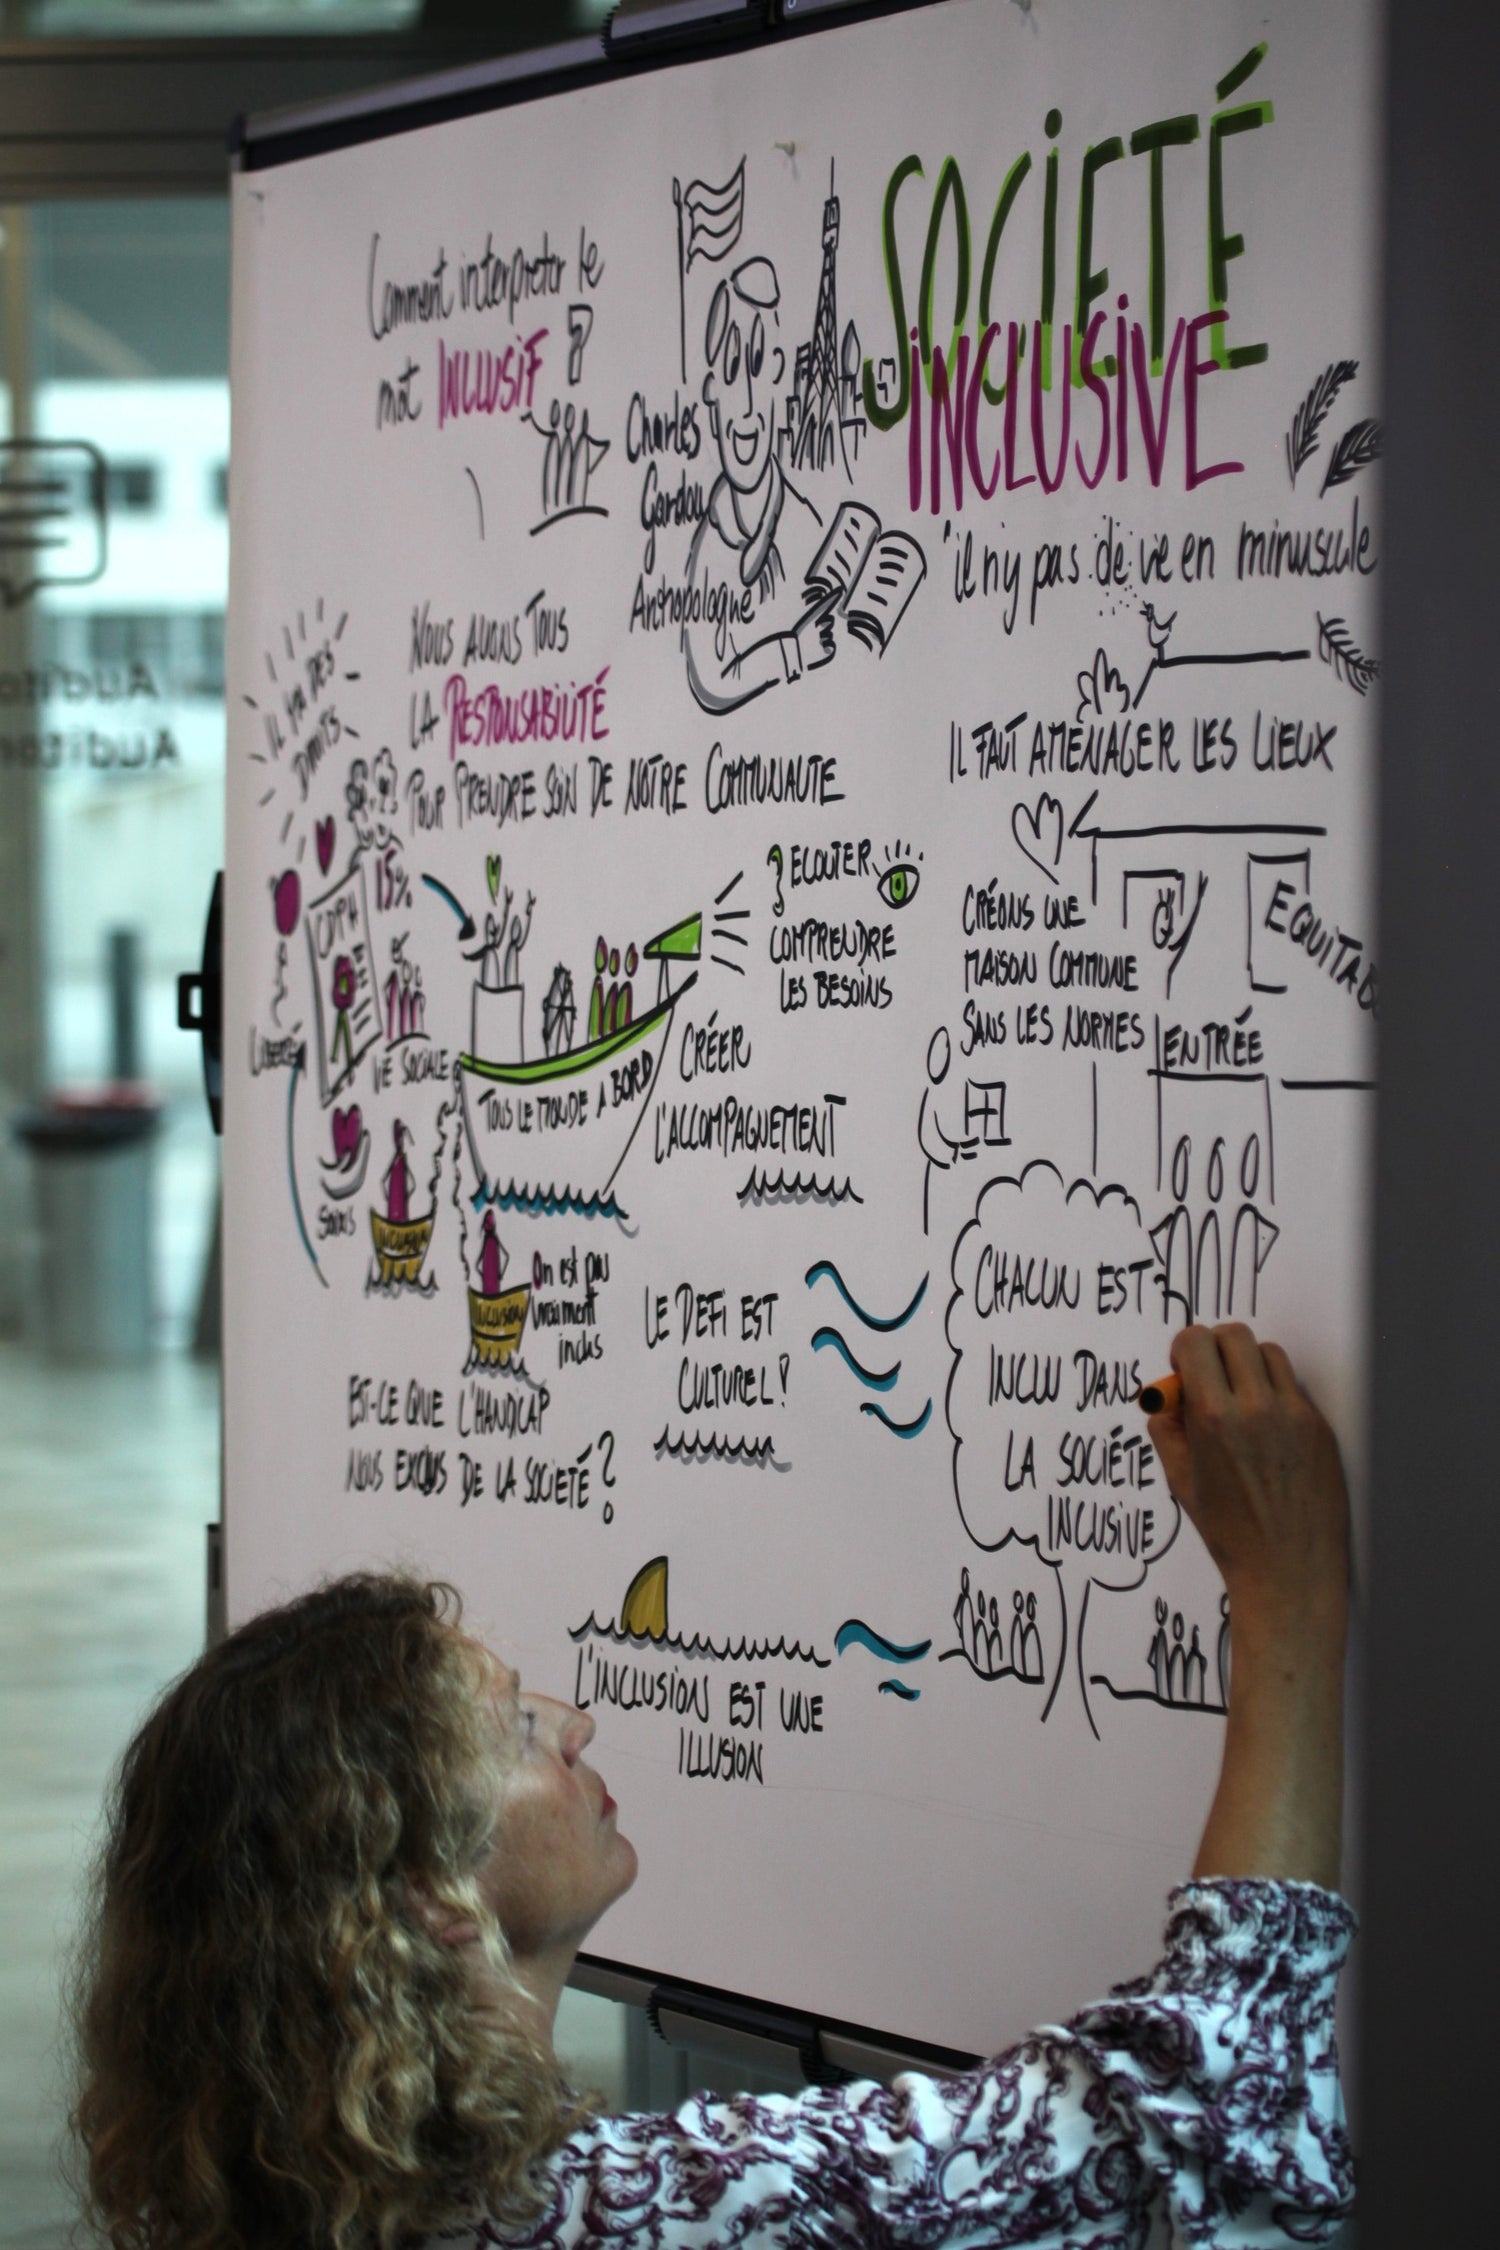 SOCIETÉ
INCLUSIVE
Comment interpreter le
mot INCLUSIF ?
Charles
Gardou
Anthropologue
"il n'y pas de vie en minuscule
NOUS AVONS TOUS
LA RESPONSABILITÉ
POUR PRENDRE SOIN DE NOTRE COMMUNAUTE
IL Y A DES
DROITS
15%
CDPH
LIBERTÉ
VIE SOCIALE
SOINS
TOUS LE MONDE A BORD
ECOUTER
COMPRENDRE
LES BESOINS
CRÉER
L'ACCOMPAGNEMENT
INCLUSION
INCLUSION
On est pas
vraiment
inclus
EST-CE QUE L'HANDICAP
NOUS EXCLUS DE LA SOCIETÉ ?
LE DEFI EST
CULTUREL !
L'INCLUSION EST UNE
ILLUSION
IL FAUT AMÉNAGER LES LIEUX
CRÉONS UNE
MAISON COMMUNE
SANS LES NORMES
EQUITAB
ENTRÉE
CHACUN EST
INCLU DANS
LA SOCIÉTE
INCUSIVE